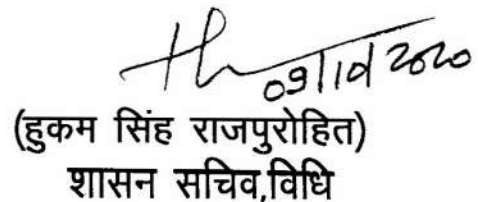 09/10/2020
(हुकम सिंह राजपुरोहित)
शासन सचिव,विधि